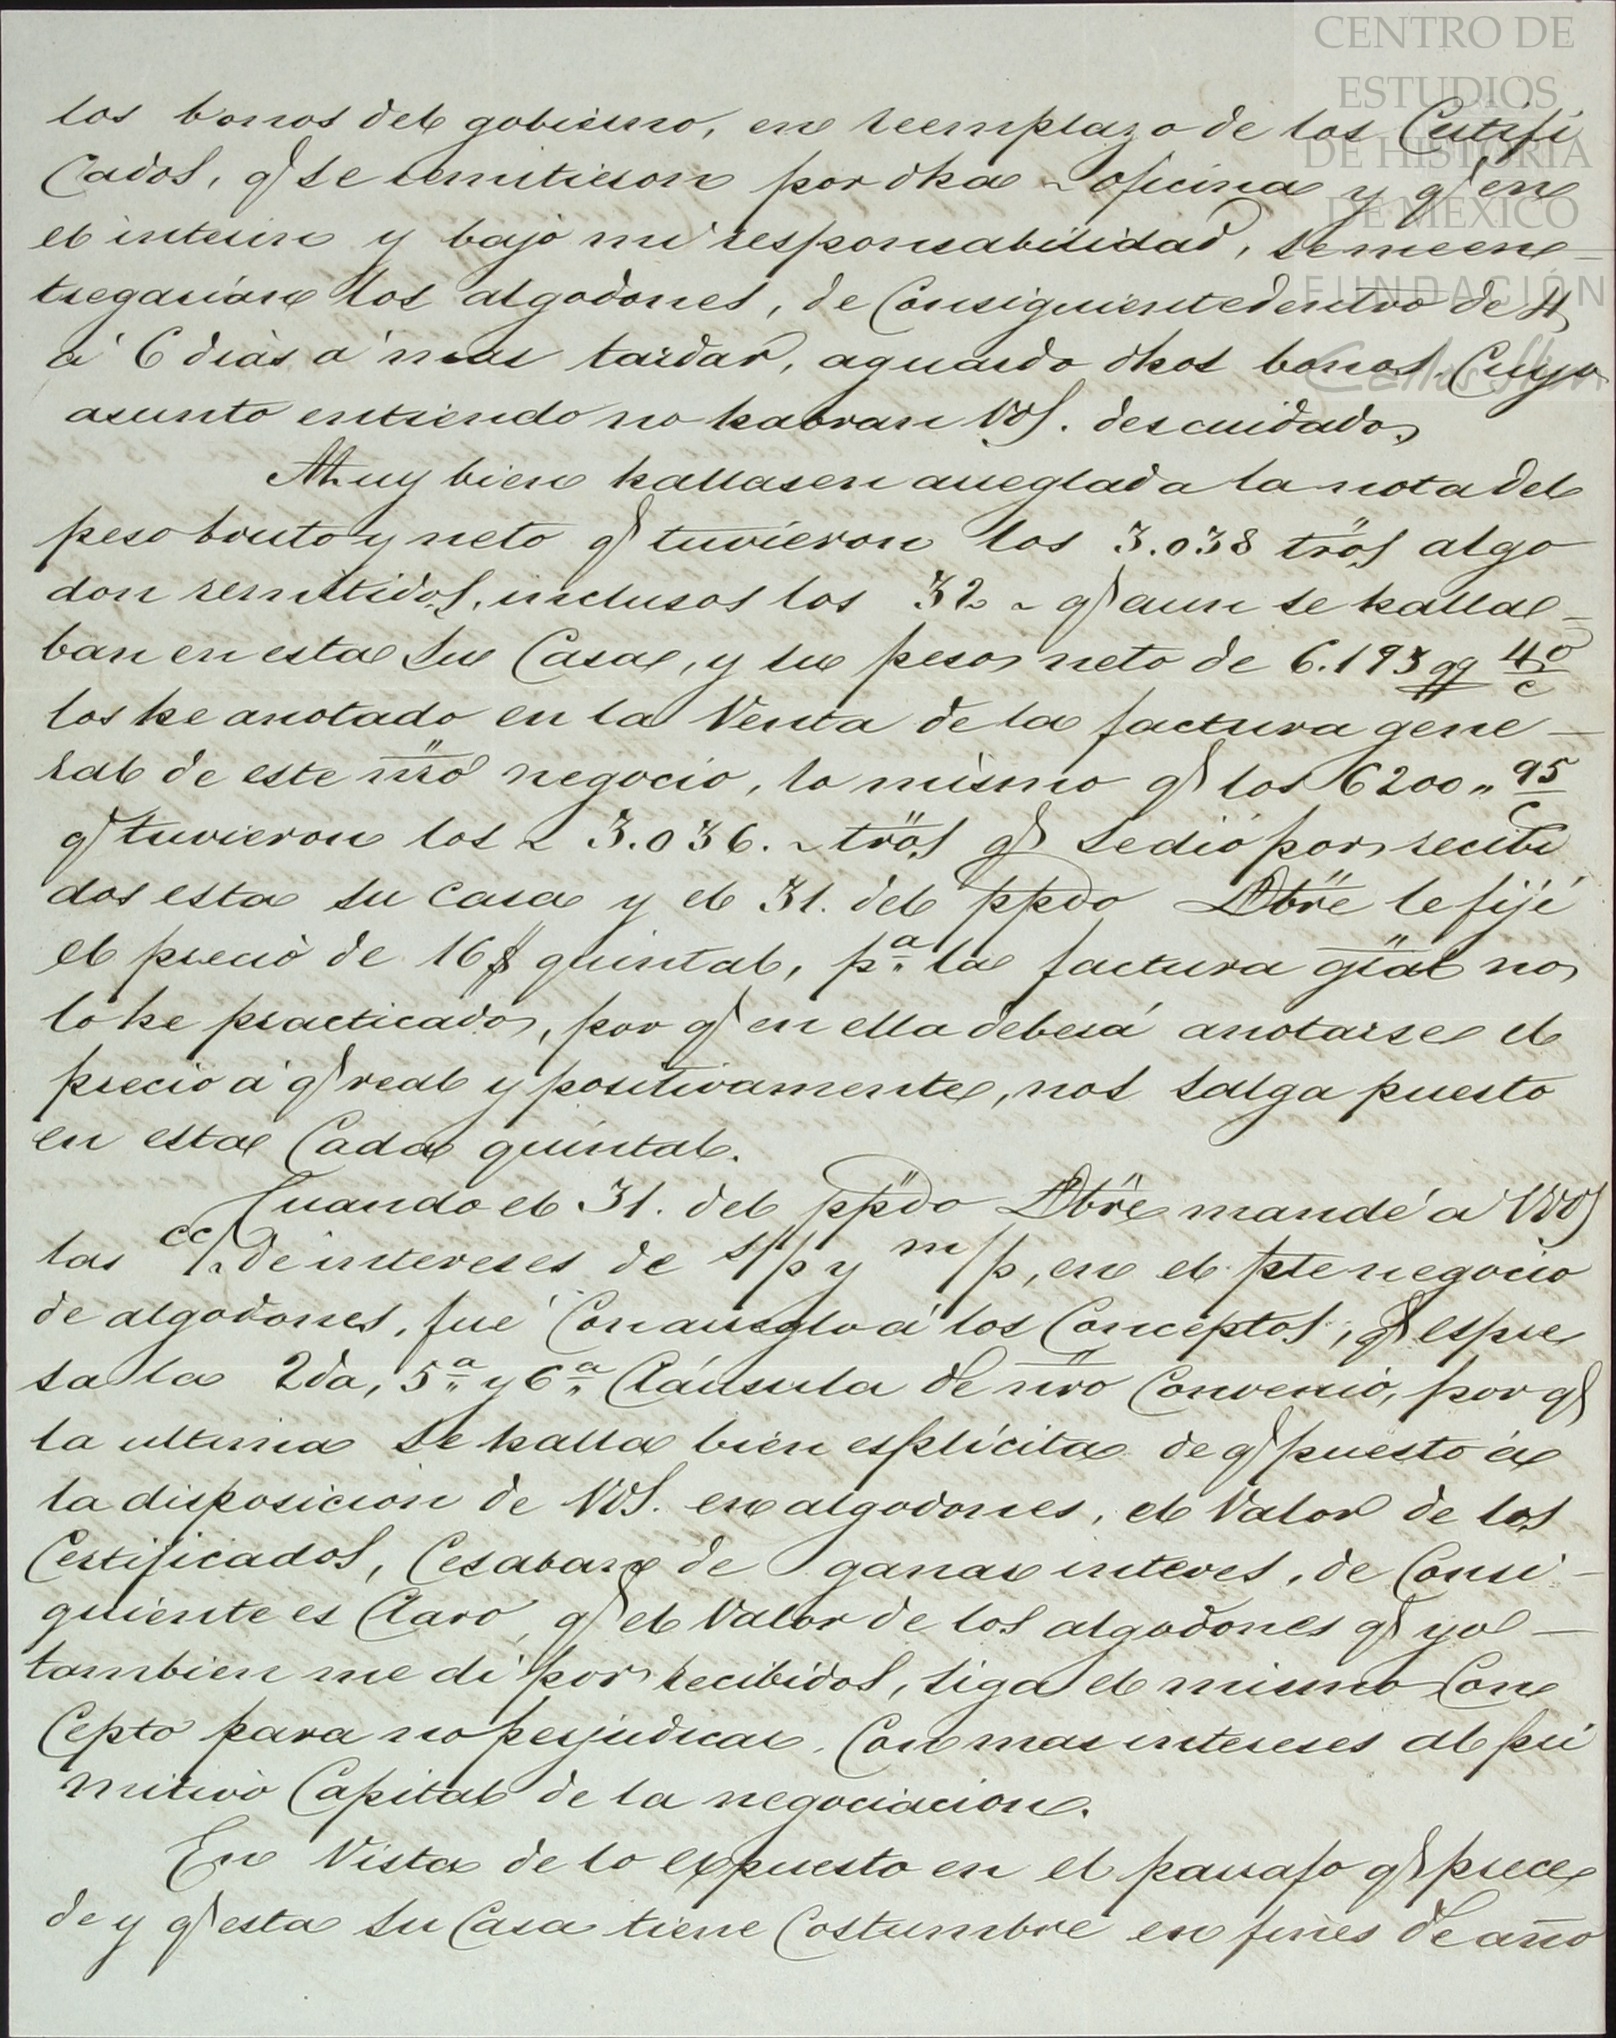 CENTRO DE
ESTUDIOS
DE HISTORIA
DE MÉXICO
FUNDACIÓN
Carlos Slim
los bonos del gobierno, en reemplazo de los Certifi
cados, q̃ se remitieron por dha oficina y q̃ en
el interin y bajo mi responsabilidad, se me en-
tregarían los algodones, de consiguiente dentro de 4
á 6 dias á mas tardar, aguardo dhos bonos. Cuyo
asunto entiendo no habran VdS. descuidado,
Muy bien hallase en arreglada la nota del
peso bruto y neto q̃ tuvieron los 3.038 trös algo
don remitidos, inclusos los 32 ~ q̃ aun se halla-
ban en esta su Casa, y su peso neto de 6.193 qq 40/c
los he anotado en la Venta de la factura gene-
ral de este nrö negocio, lo mismo q̃ los 6200 „ 95/c
q̃ tuvieron los ~ 3.036. ~ trös q̃ se dió por recibi
dos esta su casa y el 31. del ppdo Dbrë le fijé
el precio de 16 $ quintal, pª la factura gräl no
lo he practicado, por q̃ en ella deberá anotarse el
precio á q̃ real y positivamente, nos salga puesto
en esta Cada quintal.
Cuando el 31. del ppdo Dbrë mandé á VdS
las cc/ de intereses de s/p y m/p, en el pte negocio
de algodones, fué Con arreglo á los Conceptos, q̃ espre
sa la 2da, 5ª y 6ª Cláusula de nrö Convenio, por q̃
la ultima se halla bien esplícita de q̃ puesto á
la disposicion de VdS. en algodones, el Valor de los
Certificados, Cesaban de ganar interes, de Consi-
guiente es Claro, q̃ el Valor de los algodones q̃ yo -
tambien me di por recibidos, siga el mismo Con
cepto para no perjudicar, Con mas intereses al pri
mitivo Capital de la negociacion.
En Vista de lo expuesto en el parrafo q̃ prece
de y q̃ esta su Casa tiene Costumbre en fines de año